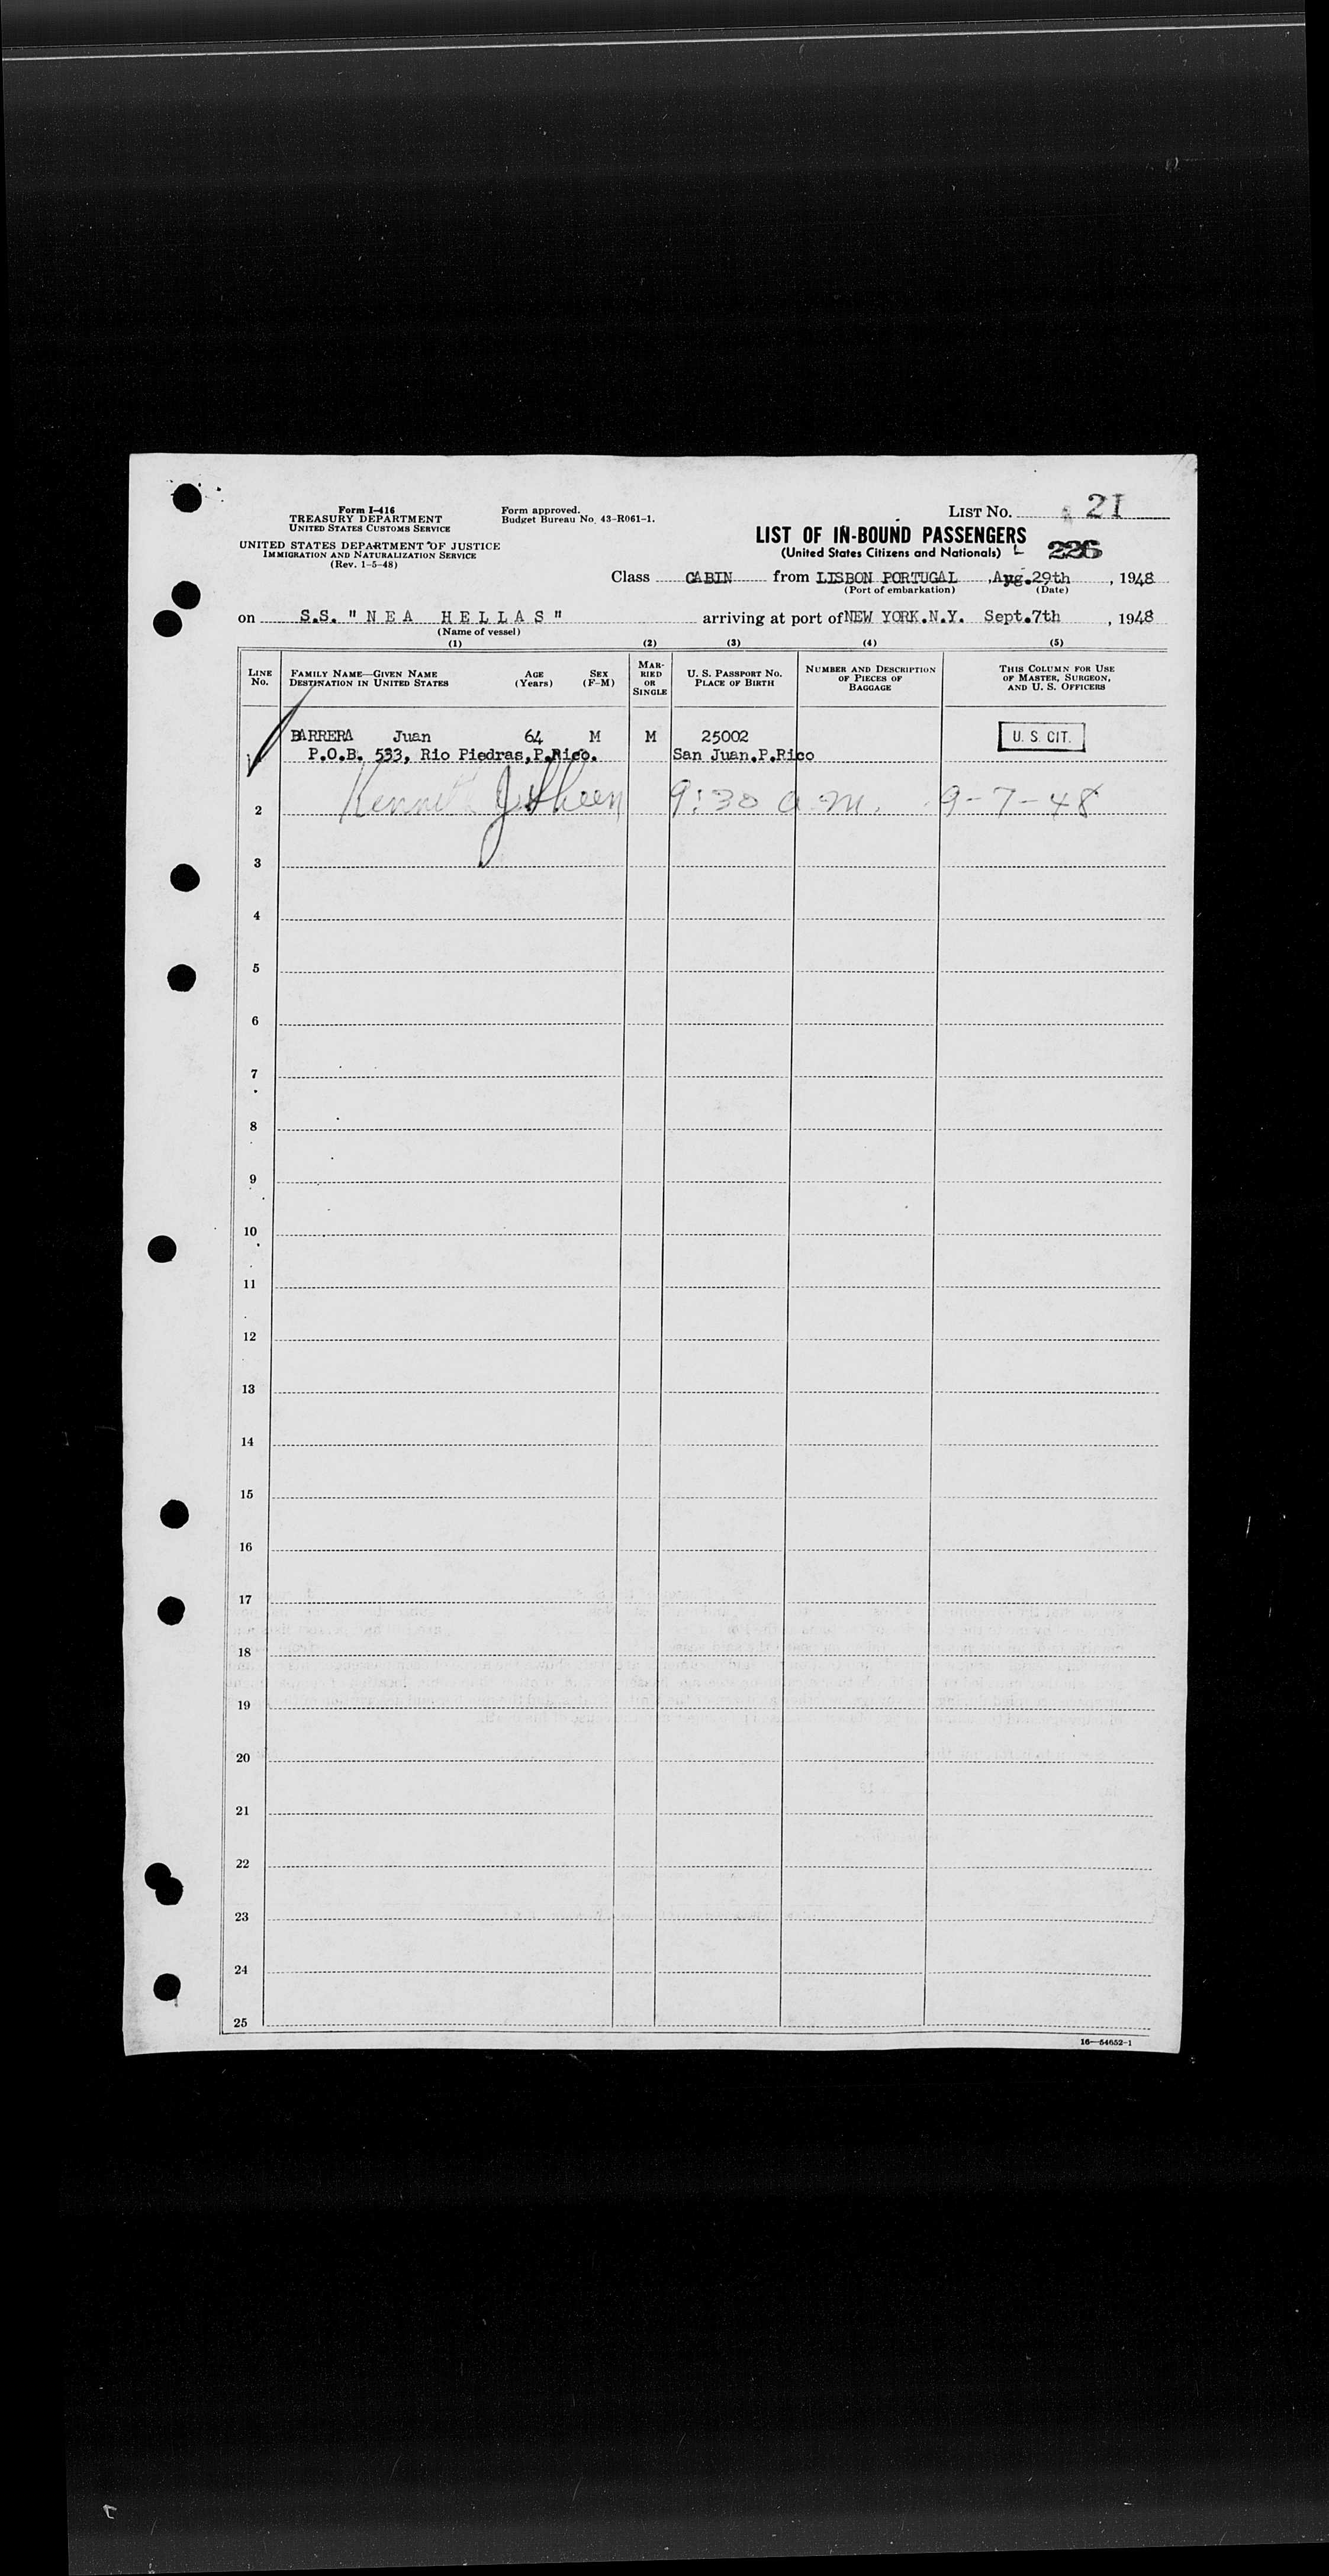 Form I-416
TREASURY DEPARTMENT
UNITED STATES CUSTOMS SERVICE
UNITED STATES DEPARTMENT OF JUSTICE
IMMIGRATION AND NATURALIZATION SERVICE
(Rev. 1-5-48)
Form approved.
Budget Bureau No. 43-R061-1.
LIST NO. 21
LIST OF IN-BOUND PASSENGERS
(United States Citizens and Nationals) L 226
Class CABIN from LISBON PORTUGAL, Aug.29th, 1948
(Port of embarkation) (Date)
on S.S. "NEA HELLAS" arriving at port of NEW YORK.N.Y. Sept.7th, 1948
(Name of vessel)
(1) (2) (3) (4) (5)
LINE NO.
FAMILY NAME—GIVEN NAME AGE (Years) SEX (F-M)
DESTINATION IN UNITED STATES
MARRIED OR SINGLE
U. S. PASSPORT NO.
PLACE OF BIRTH
NUMBER AND DESCRIPTION
OF PIECES OF
BAGGAGE
THIS COLUMN FOR USE
OF MASTER, SURGEON,
AND U. S. OFFICERS
BARRERA Juan 64 M M 25002 U. S. CIT.
1 P.O.B. 533, Rio Piedras,P.Rico. San Juan.P.Rico
2 Kenneth J 9:30 a.m. 9-7-48
3
4
5
6
7
8
9
10
11
12
13
14
15
16
17
18
19
20
21
22
23
24
25
16—54652-1